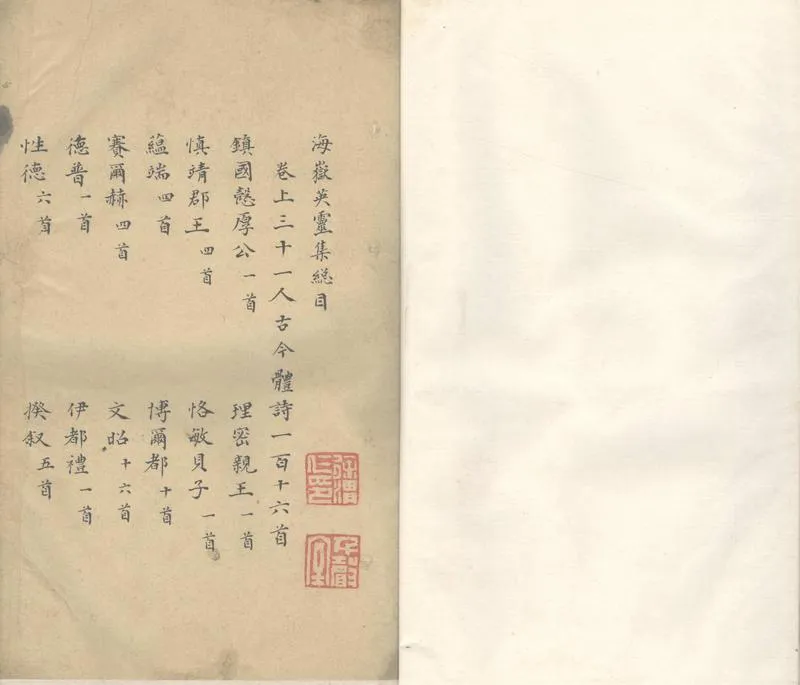 海嶽英靈集総目
卷上三十一人古今體詩一百十六首
鎮國慤厚公一首 理密親王一首
慎靖郡王四首 恪敏貝子一首
蘊端四首 博爾都十首
賽爾赫四首 文昭十六首
德普一首 伊都禮一首
性德六首 揆叙五首